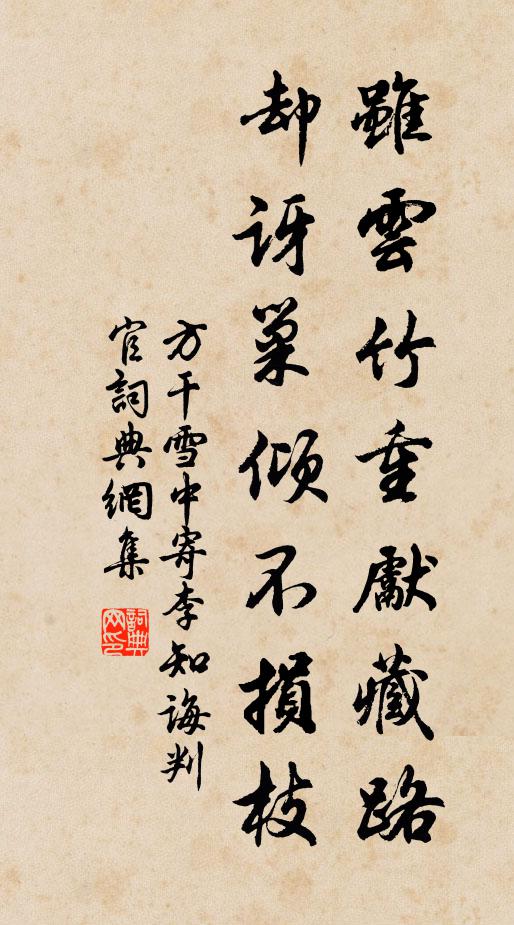 雖雲竹重獻藏路
却訝巢傾不損枝
方干雪中寄李知誨判
官詞典網集
詞典
网印